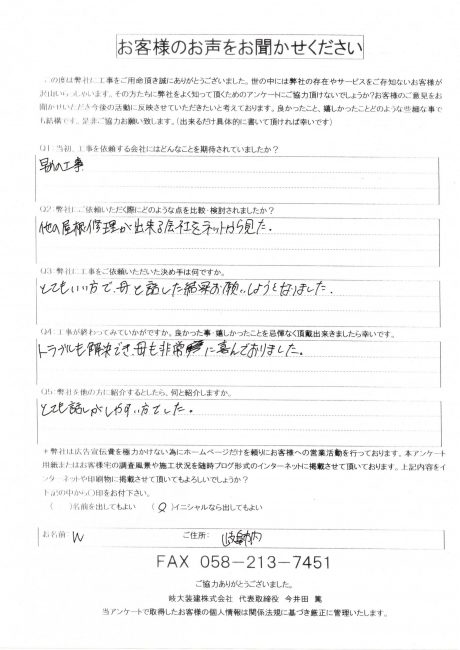 お客様のお声をお聞かせください
この度は弊社に工事をご用命頂き誠にありがとうございました。世の中には弊社の存在やサービスをご存知ないお客様が
沢山いらっしゃいます。その方たちに弊社をよく知って頂くためのアンケートにご協力頂けないでしょうか?お客様のご意見をお
聞かせいただき今後の活動に反映させていただきたいと考えております。良かったこと、嬉しかったことどのような些細な事で
も結構です。是非ご協力お願い致します。(出来るだけ具体的に書いて頂ければ幸いです)
Q1:当初、工事を依頼する会社にはどんなことを期待されていましたか?
早めの工事
Q2:弊社にご依頼いただく際にどのような点を比較・検討されましたか?
他の屋根修理が出来る会社をネットから見た。
Q3:弊社に工事をご依頼いただいた決め手は何ですか。
とてもいい方で、母と話した結果お願いしようとなりました。
Q4:工事が終わってみていかがですか。良かった事・嬉しかったことを忌憚なく頂戴出来きましたら幸いです。
トラブルも解決でき、母も非常に喜んでおりました。
Q5:弊社を他の方に紹介するとしたら、何と紹介しますか。
とても話しがしやすい方でした。
*弊社は広告宣伝費を極力かけない為にホームページだけを頼りにお客様への営業活動を行っております。本アンケート
用紙またはお客様宅の調査風景や施工状況を随時ブログ形式のインターネットに掲載させて頂いております。上記内容をイ
ンターネットや印刷物に掲載させて頂いてもよろしいでしょうか?
下記の中から〇印をお付下さい。
( )名前を出してもよい (〇)イニシャルなら出してもよい
お名前: W ご住所: 岐阜市内
FAX 058-213-7451
ご協力ありがとうございました。
岐大装建株式会社 代表取締役 今井田 篤
当アンケートで取得したお客様の個人情報は関係法規に基づき厳正に管理いたします。